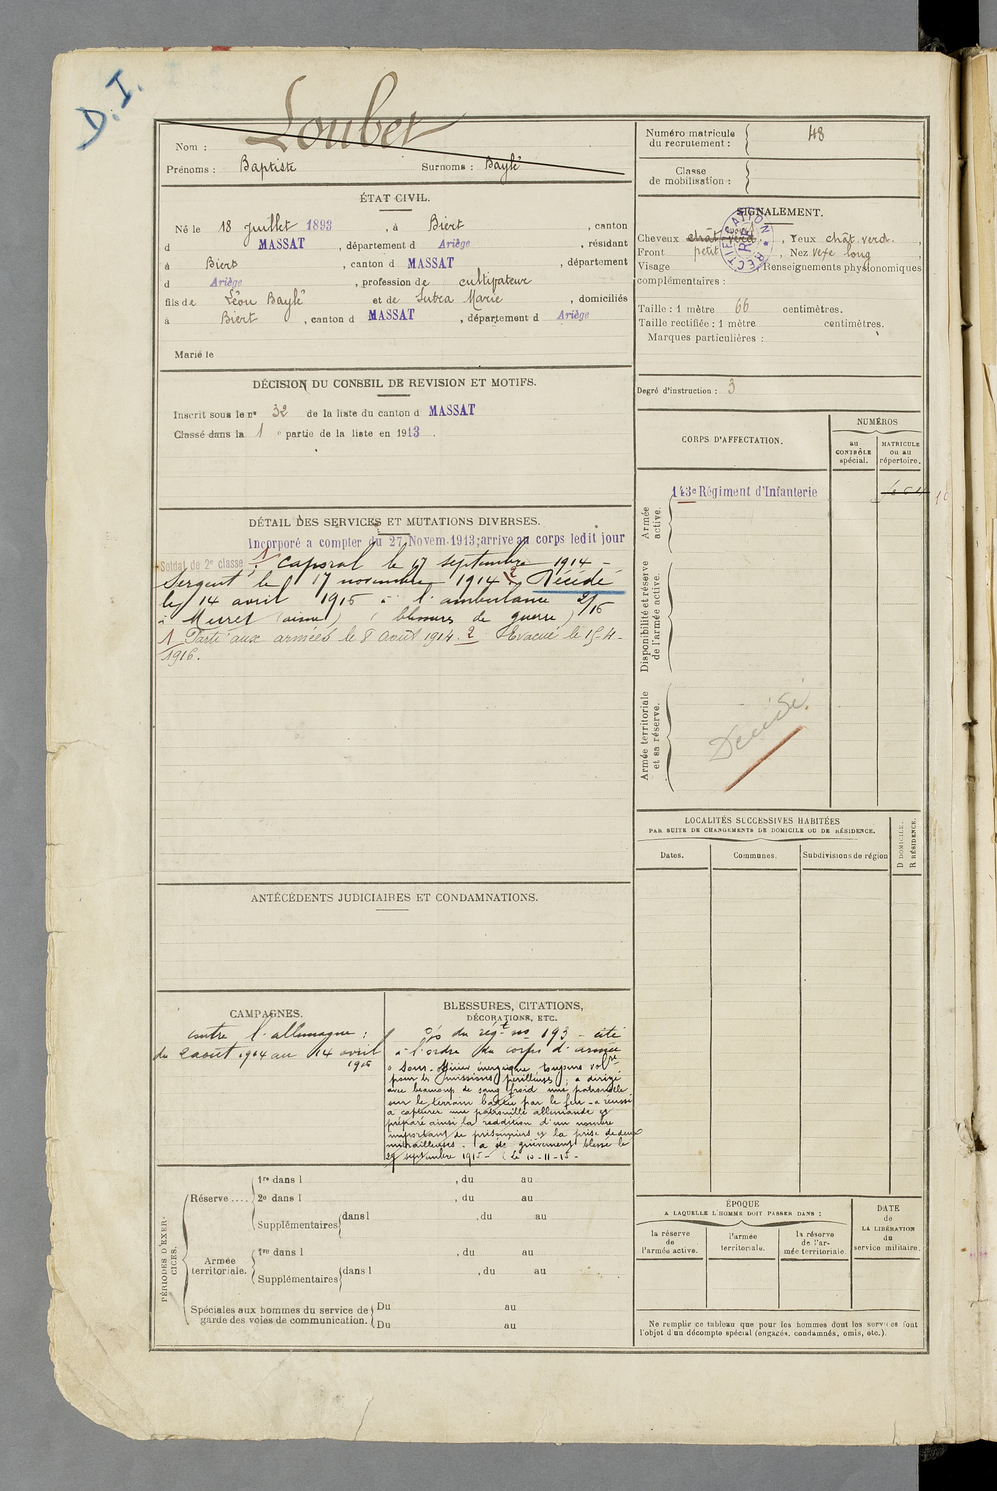 D.I.
Nom : Loubet
Prénoms : Baptiste Surnoms : Baylé
ÉTAT CIVIL.
Né le 18 juillet 1893, à Biert, canton
d MASSAT, département d Ariège, résidant
à Biert, canton d MASSAT, département
d Ariège, profession de cultivateur
fils de Léon Baylé et de Subra Marie, domiciliés
à Biert, canton d MASSAT, département d Ariège
Marié le
DÉCISION DU CONSEIL DE REVISION ET MOTIFS.
Inscrit sous le n° 32 de la liste du canton d MASSAT
Classé dans la 1 e partie de la liste en 1913.
DÉTAIL DES SERVICES ET MUTATIONS DIVERSES.
Incorporé a compter du 27 Novem. 1913; arrive au corps ledit jour
Soldat de 2e classe ; 1 caporal le 17 septembre 1914 –
Sergent le 17 novembre 1914 2 Décédé
le 14 avril 1916 à l'ambulance 2/15
à Muret (aisne) (blessures de guerre)
1 Parti aux armées le 8 août 1914. 2 Evacué le 15-4-
1916.
ANTÉCÉDENTS JUDICIAIRES ET CONDAMNATIONS.
CAMPAGNES.
contre l'allemagne :
du 2 août 1914 au 14 avril
1916
BLESSURES, CITATIONS,
DÉCORATIONS, ETC.
du régt no 193 – cité
à l'ordre du corps d'armée
Sous-officier énergique toujours volre
pour les missions périlleuses ; a dirigé
avec beaucoup de sang froid une patrouille
sur le terrain battu par le feu – a réussi
a capturer une patrouille allemande et
préparé ainsi la reddition d'un nombre
important de prisonniers et la prise de deux
mitrailleuses. a été grièvement blessé le
29 septembre 1915 – (le 10-11-15 –
PÉRIODES D'EXERCICES.
Réserve .... 1re dans l , du au
2e dans l , du au
Supplémentaires dans l , du au
Armée territoriale. 1re dans l , du au
Supplémentaires dans l , du au
Spéciales aux hommes du service de
garde des voies de communication. Du au
Du au
Numéro matricule
du recrutement : 48
Classe
de mobilisation :
SIGNALEMENT.
RECTIFICATION
Cheveux chât. verd , Yeux chât. verd. ,
Front petit , Nez vexe long ,
Visage Renseignements physionomiques
complémentaires :
Taille : 1 mètre 66 centimètres.
Taille rectifiée : 1 mètre centimètres.
Marques particulières :
Degré d'instruction : 3
CORPS D'AFFECTATION.
NUMÉROS
au
CONTRÔLE
spécial.
MATRICULE
ou au
répertoire.
Armée
active.
143e Régiment d'Infanterie
Disponibilité et réserve
de l'armée active.
Armée territoriale
et sa réserve.
Décédé.
LOCALITÉS SUCCESSIVES HABITÉES
PAR SUITE DE CHANGEMENTS DE DOMICILE OU DE RÉSIDENCE.
Dates. Communes. Subdivisions de région
D DOMICILE.
R RÉSIDENCE.
ÉPOQUE
A LAQUELLE L'HOMME DOIT PASSER DANS :
la réserve
de
l'armée active.
l'armée
territoriale.
la réserve
de l'ar-
mée territoriale.
DATE
de
LA LIBÉRATION
du
service militaire.
Ne remplir ce tableau que pour les hommes dont les services font
l'objet d'un décompte spécial (engagés, condamnés, omis, etc.).